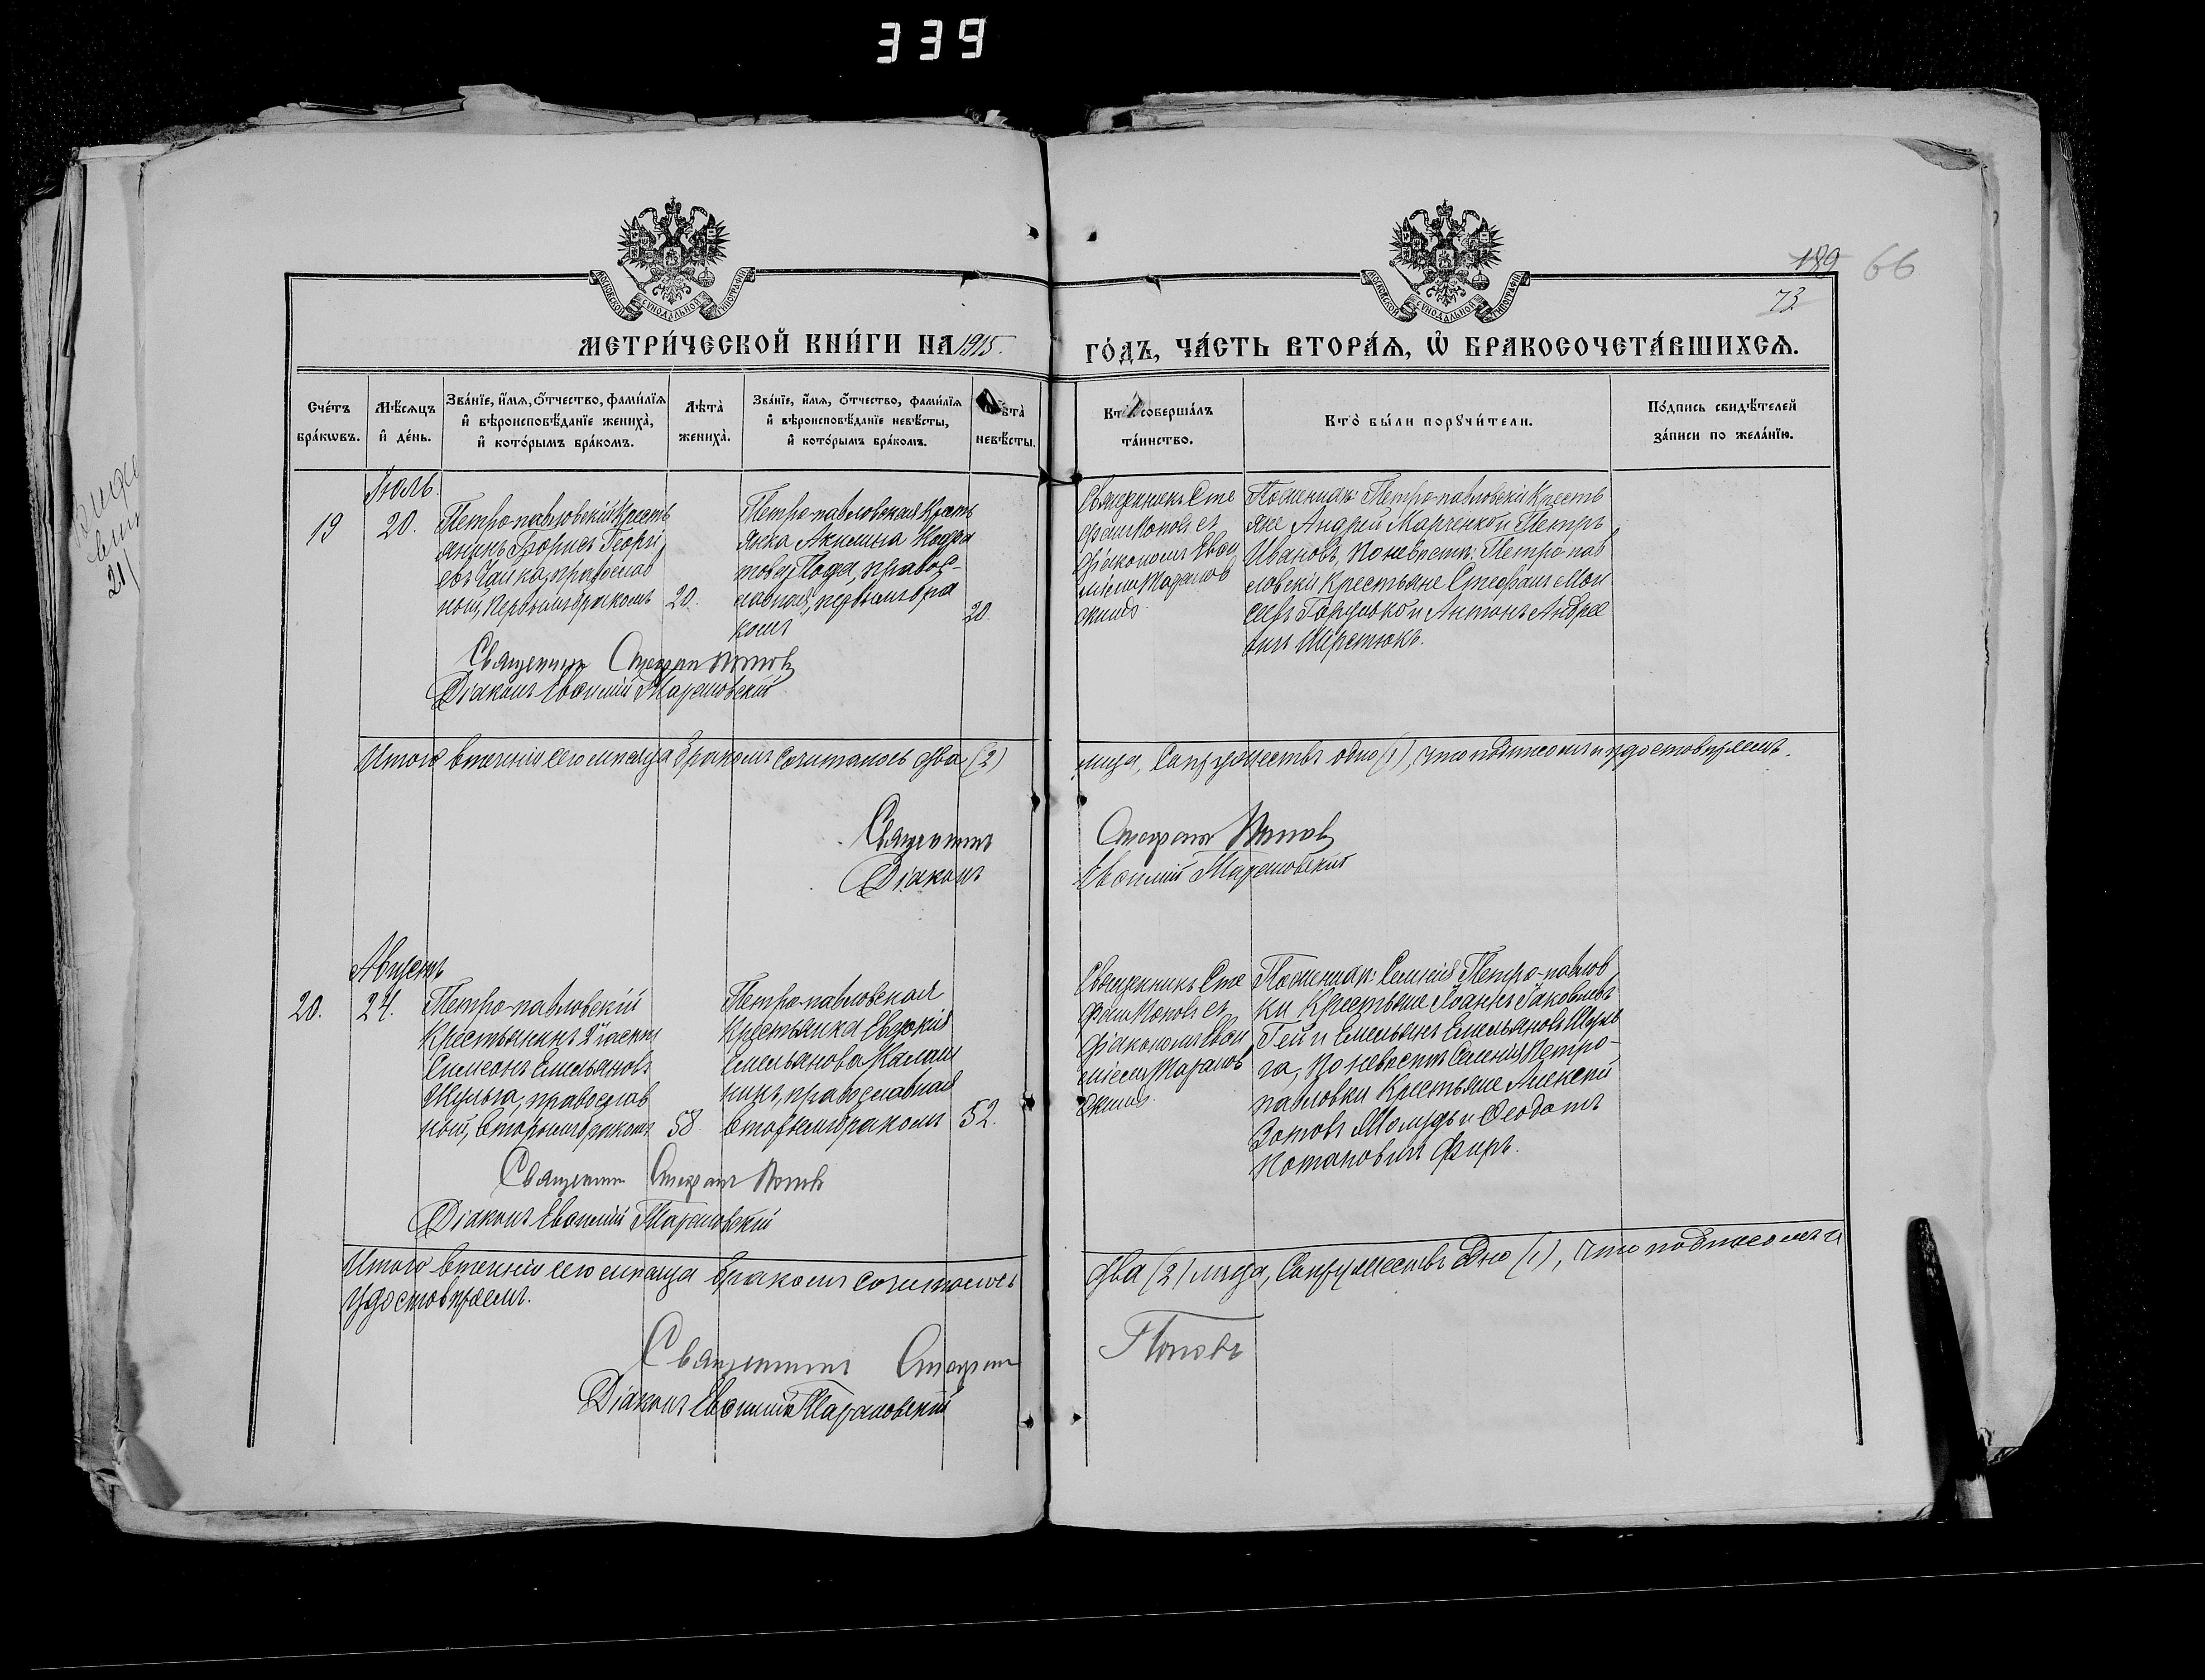 339
189 66
73
МОСКОВСКОЙ СѴНОДАЛЬНОЙ ТИПОГРАФІИ
МОСКОВСКОЙ СѴНОДАЛЬНОЙ ТИПОГРАФІИ
МЕТРИ́ЧЕСКОЙ КНИ́ГИ НА 1915.
ГО́ДЪ, ЧА́СТЬ ВТОРА́Ѧ, Ѽ БРАКОСОЧЕТА́ВШИХСѦ.
Сче́тъ бра́кѡвъ.
Мѣ́сѧцъ и҆ де́нь.
Зва́нїе, и҆́мѧ, ѻ҆́тчество, фамилі́ѧ и҆ вѣроисповѣ́данїе жениха̀, и҆ кото́рымъ бра́комъ.
Лѣ́та̀ жениха̀.
Зва́нїе, и҆́мѧ, ѻ҆́тчество, фамилі́ѧ и҆ вѣроисповѣ́данїе невѣ́сты, и҆ кото́рымъ бра́комъ.
невѣ́сты.
Кто̀ соверша́лъ та́инство.
Кто̀ бы́ли порꙋчи́тели.
По́дпись свидѣ́телей за́писи по жела́нїю.
Іюль.
19
20.
Петро-павловскій Кресть
янинъ Борисъ Георгі
евъ Чайка, православ
ный, первымъ бракомъ
20.
Петро-павловская Кресть
янка Акилина Кодра
това, правос-
лавная, первымъ бра
комъ
20.
Священникъ Сте
фанъ Поповъ съ
діакономъ Евѳи
міемъ Таранов
скимъ
По женихѣ: Петро-павловскіи Кресть
яне Андрей Марченко и Петръ
Ивановъ, по невѣстѣ: Петро-пав
ловскіи Крестьяне Стефанъ Мои
сеевъ и Антонъ Андрее
вичъ Шереметюкъ.
Священникъ Стефанъ Поповъ
Діаконъ Евѳимій Тарановскій
Итого въ теченіи сего мѣсяца бракомъ сочеталось два (2)
лица, супружествъ одно (1), что подписомъ и удостовѣряемъ.
Священникъ
Стефанъ Поповъ
Діаконъ
Евѳимій Тарановскій
Августъ
20.
24.
Петро-павловскій
Крестьянинъ
Симеонъ Емельяновъ
Шульга, православ
ный, вторымъ бракомъ
58.
Петро-павловская
Крестьянка Евдокія
Емельянова Калаш
никъ, православная
вторымъ бракомъ
52.
Священникъ Сте
фанъ Поповъ съ
діакономъ Евѳи
міемъ Таранов
скимъ.
По женихѣ: Селенія Петро-павлов
ки Крестьяне Іоаннъ Іаковлевъ
Гей и Емельянъ Емельяновъ Шуль
га, по невѣстѣ Селенія Петро-
павловки Крестьяне Алексѣй
Зотовъ и Ѳеодотъ
Потаповичъ Фиръ.
Священникъ Стефанъ Поповъ
Діаконъ Евѳимій Тарановскій
Итого въ теченіи сего мѣсяца бракомъ сочеталось
два (2) лица, супружествъ одно (1), что подписомъ и
удостовѣряемъ.
Священникъ Стефанъ
Поповъ
Діаконъ Евѳимій Тарановскій